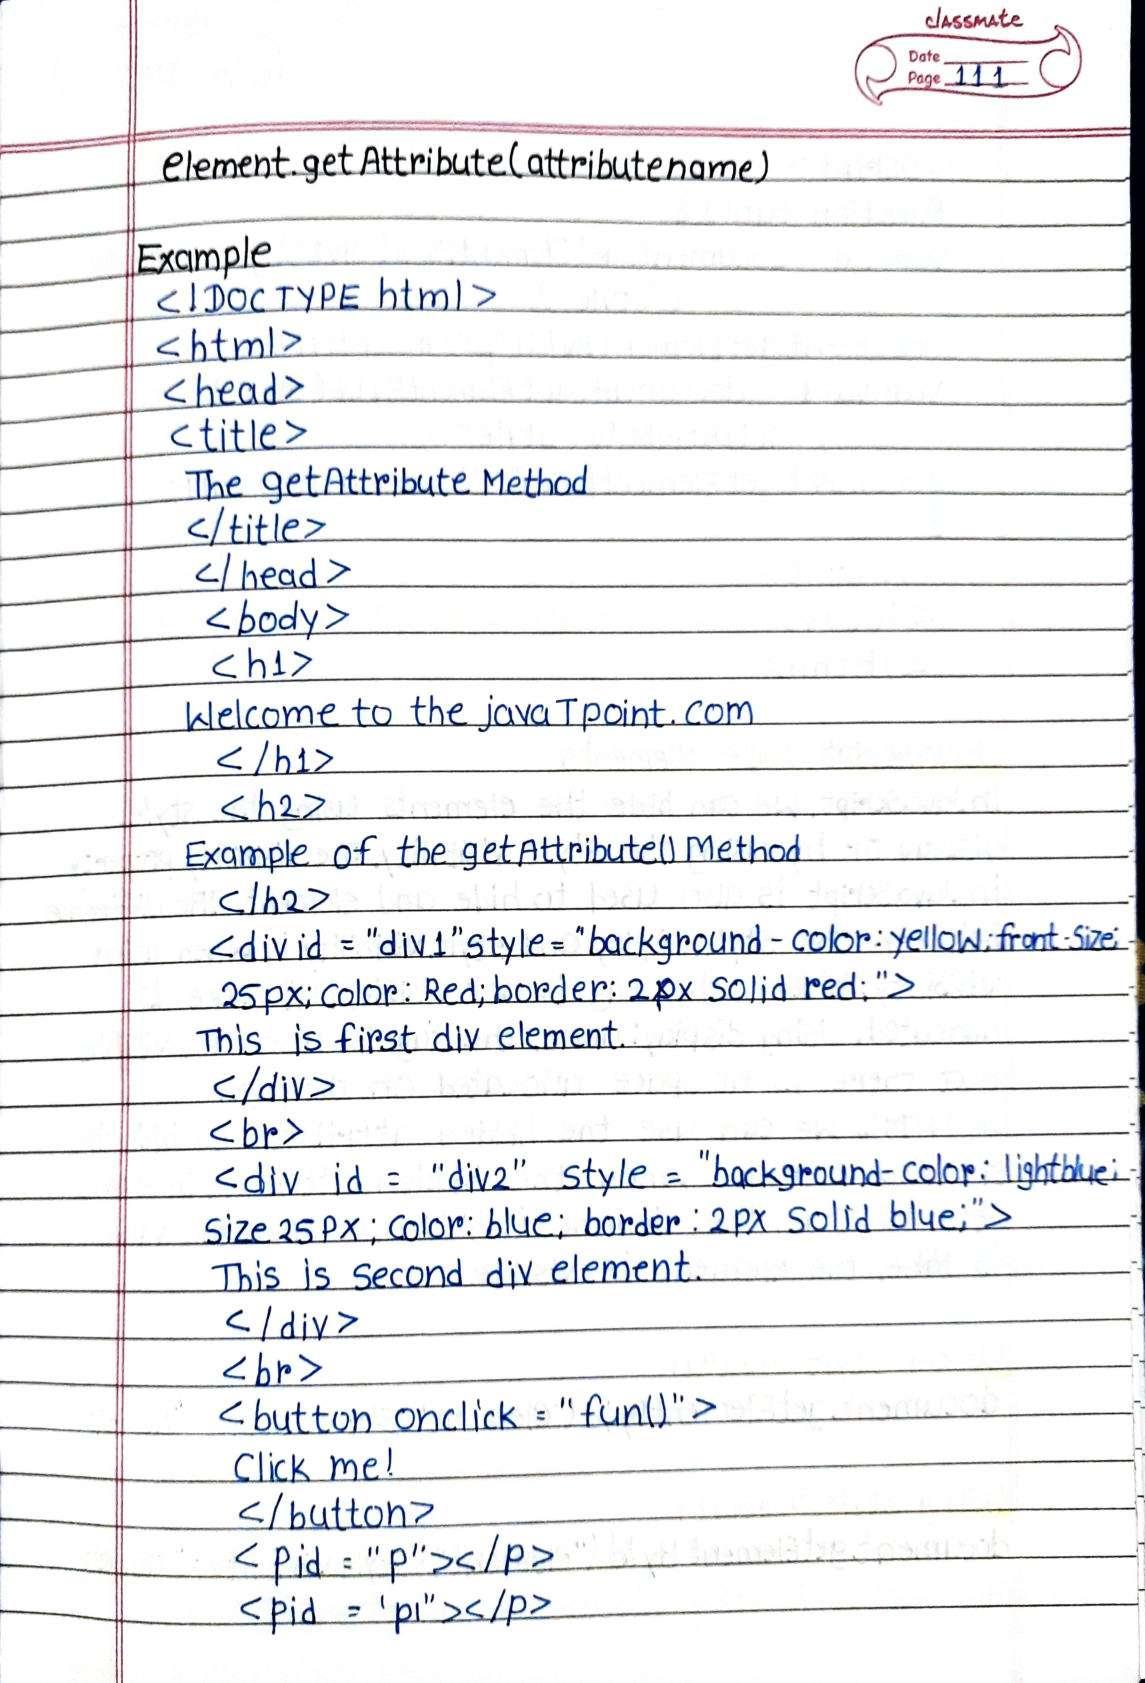 classmate
Date
Page 111
element.getAttribute(attributename)
Example
<!DOCTYPE html>
<html>
<head>
<title>
The getAttribute Method
</title>
</head>
<body>
<h1>
Welcome to the javaTpoint.com
</h1>
<h2>
Example of the getAttribute() Method
</h2>
<div id = "div1" style = "background-color: yellow; front-size:
25px; color: Red; border: 2px solid red;">
This is first div element.
</div>
<br>
<div id = "div2" style = "background-color: lightblue;
size 25px; color: blue; border: 2px solid blue;">
This is second div element.
</div>
<br>
<button onclick = "fun()">
Click me!
</button>
<pid = "p"></p>
<pid = 'p1"></p>